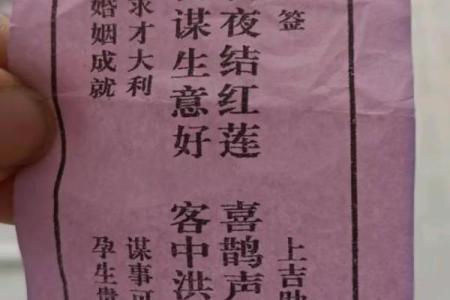 签 上吉
夜结红莲 喜鹊声
谋生意好 客中洪
求才大利 谋事可
婚姻成就 孕生贵